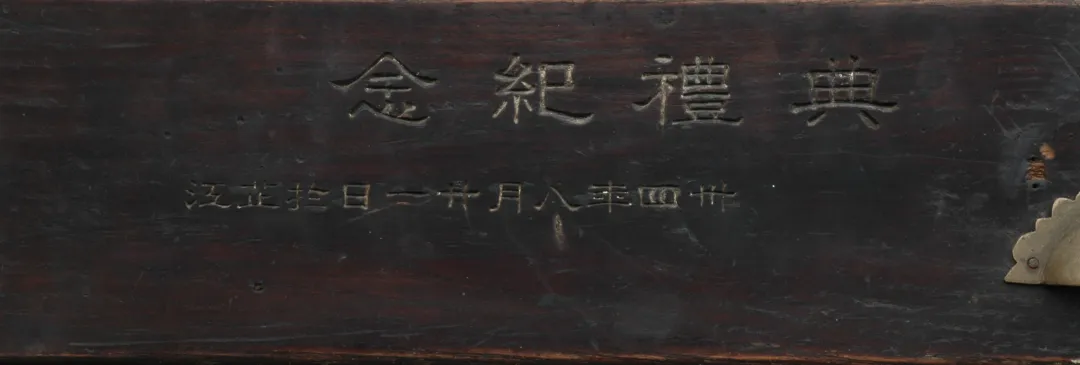 典禮紀念
卅四年八月廿一日於芷江